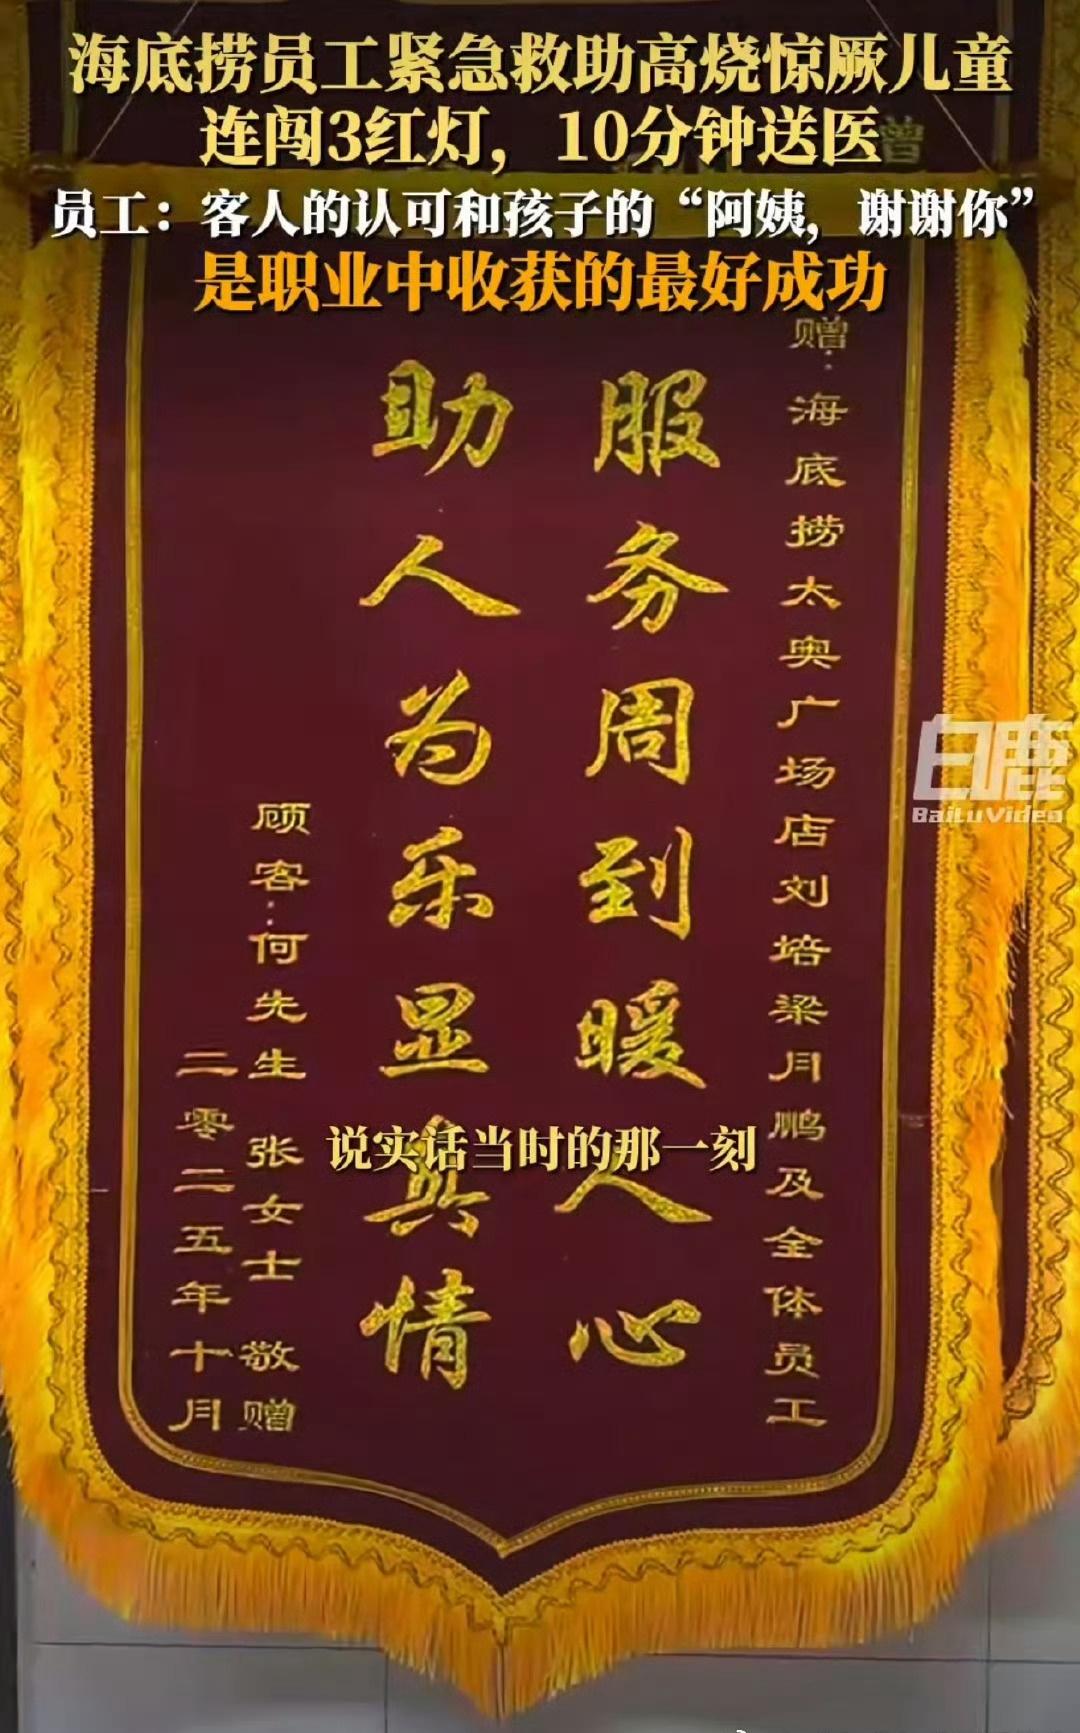 海底捞员工紧急救助高烧惊厥儿童
连闯3红灯，10分钟送医
员工：客人的认可和孩子的“阿姨，谢谢你”
是职业中收获的最好成功
赠：海底捞太奥广场店刘培梁月鹏及全体员工
服务周到暖人心
助人为乐显真情
顾客：何先生 张女士 敬赠
二零二五年十月
说实话当时的那一刻
白鹿
BaiLuVideo